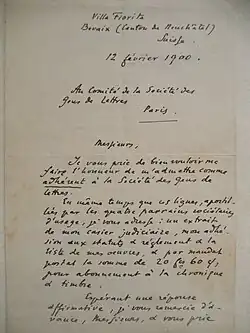 Villa Fiorita
Bevaix (Canton de Neuchâtel)
Suisse
12 février 1900.
Au Comité de la Société des
Gens de Lettres
Paris.
Messieurs,
Je vous prie de bien vouloir me
faire l'honneur de m'admettre comme
adhérent à la Société des Gens de
lettres.
En même temps que ces lignes, apostil-
lées par les quatre parrains sociétaires
d'usage, je vous adresse: un extrait
de mon casier judiciaire, mon adhé-
sion aux statuts & règlement & la
liste de mes œuvres, & par mandat
postal la somme de 20 fr 60 c,
pour abonnement à la chronique
& timbre.
Espérant une réponse
affirmative, je vous remercie d'a-
vance, Messieurs, & vous prie